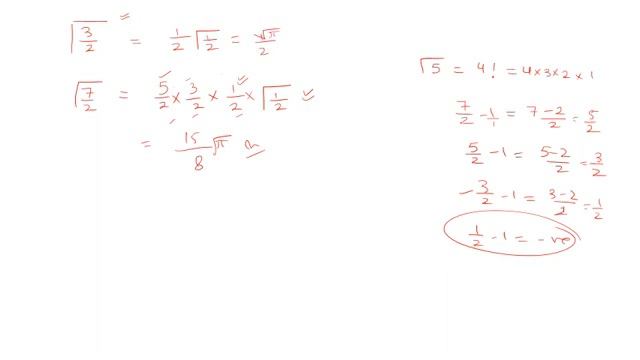 Γ3/2 = 1/2 Γ1/2 = √π/2
Γ7/2 = 5/2 × 3/2 × 1/2 × Γ1/2
= 15/8 √π
Γ5 = 4! = 4×3×2×1
7/2 - 1/1 = 7-2/2 = 5/2
5/2 - 1 = 5-2/2 = 3/2
3/2 - 1 = 3-2/2 = 1/2
1/2 - 1 = -ve